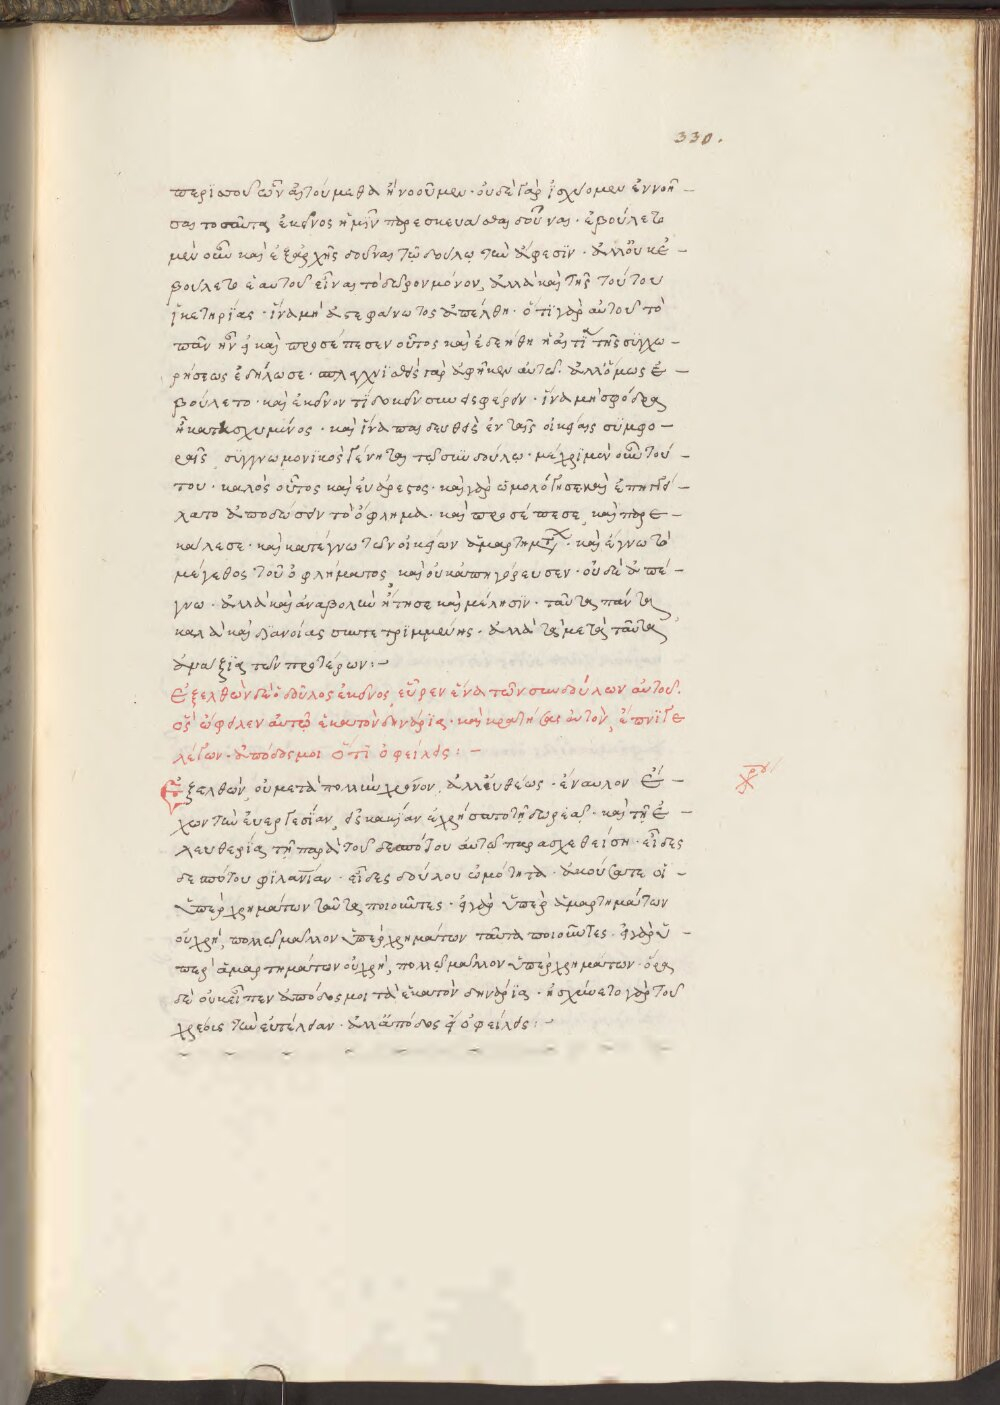 330.
περὶ σπουδῶν αἰτούμεθα ἢ νοοῦμεν· οὐδὲ γὰρ ἰσχύομεν ἐννοῆ –
σαι τοσαῦτα, ἐκεῖνος ἡμῖν παρεσκευάσθαι δοῦναι· ἐβούλετο
μὲν οὖν καὶ ἐξαρχῆς δοῦναι τῷ δούλῳ τὴν ἄφεσιν· ἀλλ' οὐκ ἐ –
βούλετο ἑαυτοῦ εἶναι τὸ δῶρον μόνον, ἀλλὰ καὶ τῆς τούτου
ἱκετηρίας· ἵνα μὴ ἀστεφάνωτος ἀπέλθη· ὅτι γὰρ αὐτοῦ τὸ
πᾶν ἦν εἰ καὶ προσέπεσεν οὗτος καὶ ἐδεήθη ἡ αἰτία τῆς συγχω –
ρήσεως ἐδήλωσε· σπλαγχνισθεὶς γὰρ ἀφῆκεν αὐτῶ· ἀλλ' ὅμως ἐ –
βούλετο· καὶ ἐκεῖνον τί δοκεῖν συνεισφέρειν· ἵνα μὴ σφόδρα
ἦ κατησχυμμένος· καὶ ἵνα παιδευθεὶς ἐν ταῖς οἰκείαις συμφο –
ραῖς, συγγνωμονικὸς γένηται τῷ συνδούλῳ· μέχρι μὲν οὖν τού –
του· καλὸς οὗτος καὶ εὐάρεστος· καὶ γὰρ ὡμολόγησε καὶ ἐπηγγεί –
λατο ἀποδώσειν τὸ ὄφλημα· καὶ προσέπεσε, καὶ παρε –
κάλεσε· καὶ κατέγνω τῶν οἰκείων ἁμαρτημάτων· καὶ ἔγνω τὸ
μέγεθος τοῦ ὀφλήματος, καὶ οὐκ ἀπηγόρευσεν· οὐδὲ ἀπέ –
γνω· ἀλλὰ καὶ ἀναβολὴν ἤτησε καὶ μέλησιν· ταῦτα πάντα
καλὰ καὶ διανοίας συντετριμμένης· ἀλλὰ τὰ μετὰ ταῦτα,
ἀνάξια τῶν προτέρων: –
Ἐξελθὼν δὲ ὁ δοῦλος ἐκεῖνος, εὗρεν ἕνα τῶν συνδούλων αὐτοῦ.
ὃς ὤφειλεν αὐτῷ ἑκατὸν δηνάρια· καὶ κρατήσας αὐτὸν, ἔπνιγε
λέγων· ἀπόδος μοι ὅτι ὀφείλεις: –
Ἐξελθὼν, οὐ μετὰ πολὺν χρόνον, ἀλλ' εὐθέως· ἔναυλον ἔ –
χων τὴν εὐεργεσίαν, εἰς κακίαν ἐχρήσατο τῆ δωρεᾶ· καὶ τῆ ἐ –
λευθερία τῆ παρὰ τοῦ δεσπότου αὐτῶ παρασχεθείση· εἶδες
δεσπότου φιλανίαν· εἶδες δούλου ὠμότητα· ἀκούσατε οἱ –
ὑπὲρ χρημάτων ταῦτα ποιοῦντες· εἰ γὰρ ὑπὲρ ἁμαρτημάτων
οὐ χρή, πολλῶ μᾶλλον ὑπὲρ χρημάτων ταῦτα ποιοῦντες· εἰ γὰρ ὑ –
περ ἁμαρτημάτων οὐ χρή, πολλῶ μᾶλλον ὑπὲρ χρημάτων· ὅρα
δὲ οὐκ εἶπεν ἀπόδος μοι τὰ ἑκατὸν δηνάρια· ἠσχύνετο γὰρ τοῦ
χρέους τὴν εὐτέλειαν· ἀλλ' ἀπόδος εἴ ὀφείλεις: –